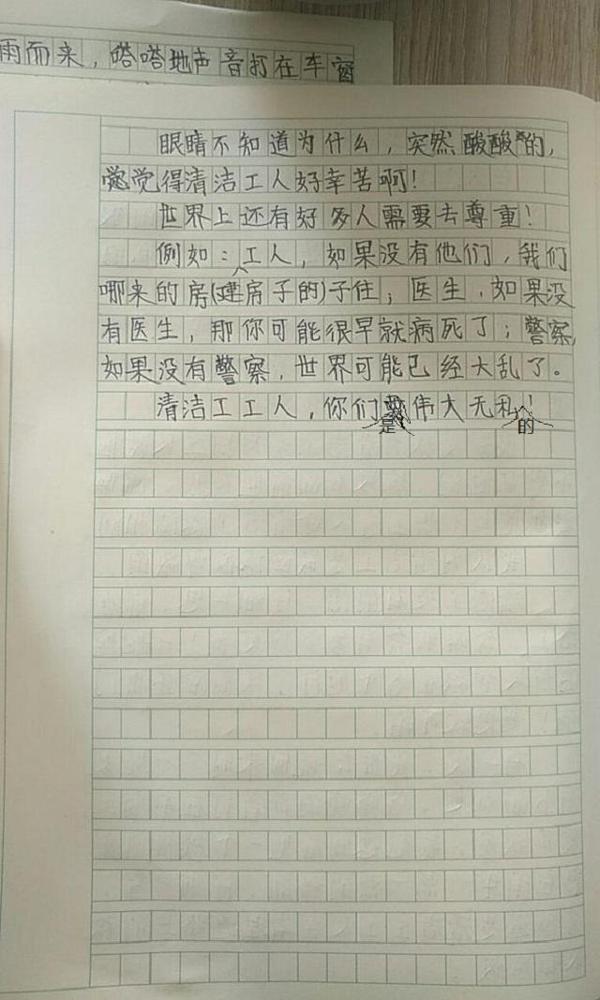 雨而来，嗒嗒地声音打在车窗
眼睛不知道为什么，突然酸酸的，
觉得清洁工人好幸苦啊！
世界上还有好多人需要去尊重！
例如：工人，如果没有他们，我们
哪来的房(建房子的)子住；医生，如果没
有医生，那你可能很早就病死了；警察，
如果没有警察，世界可能已经大乱了。
清洁工工人，你们是伟大无私的！